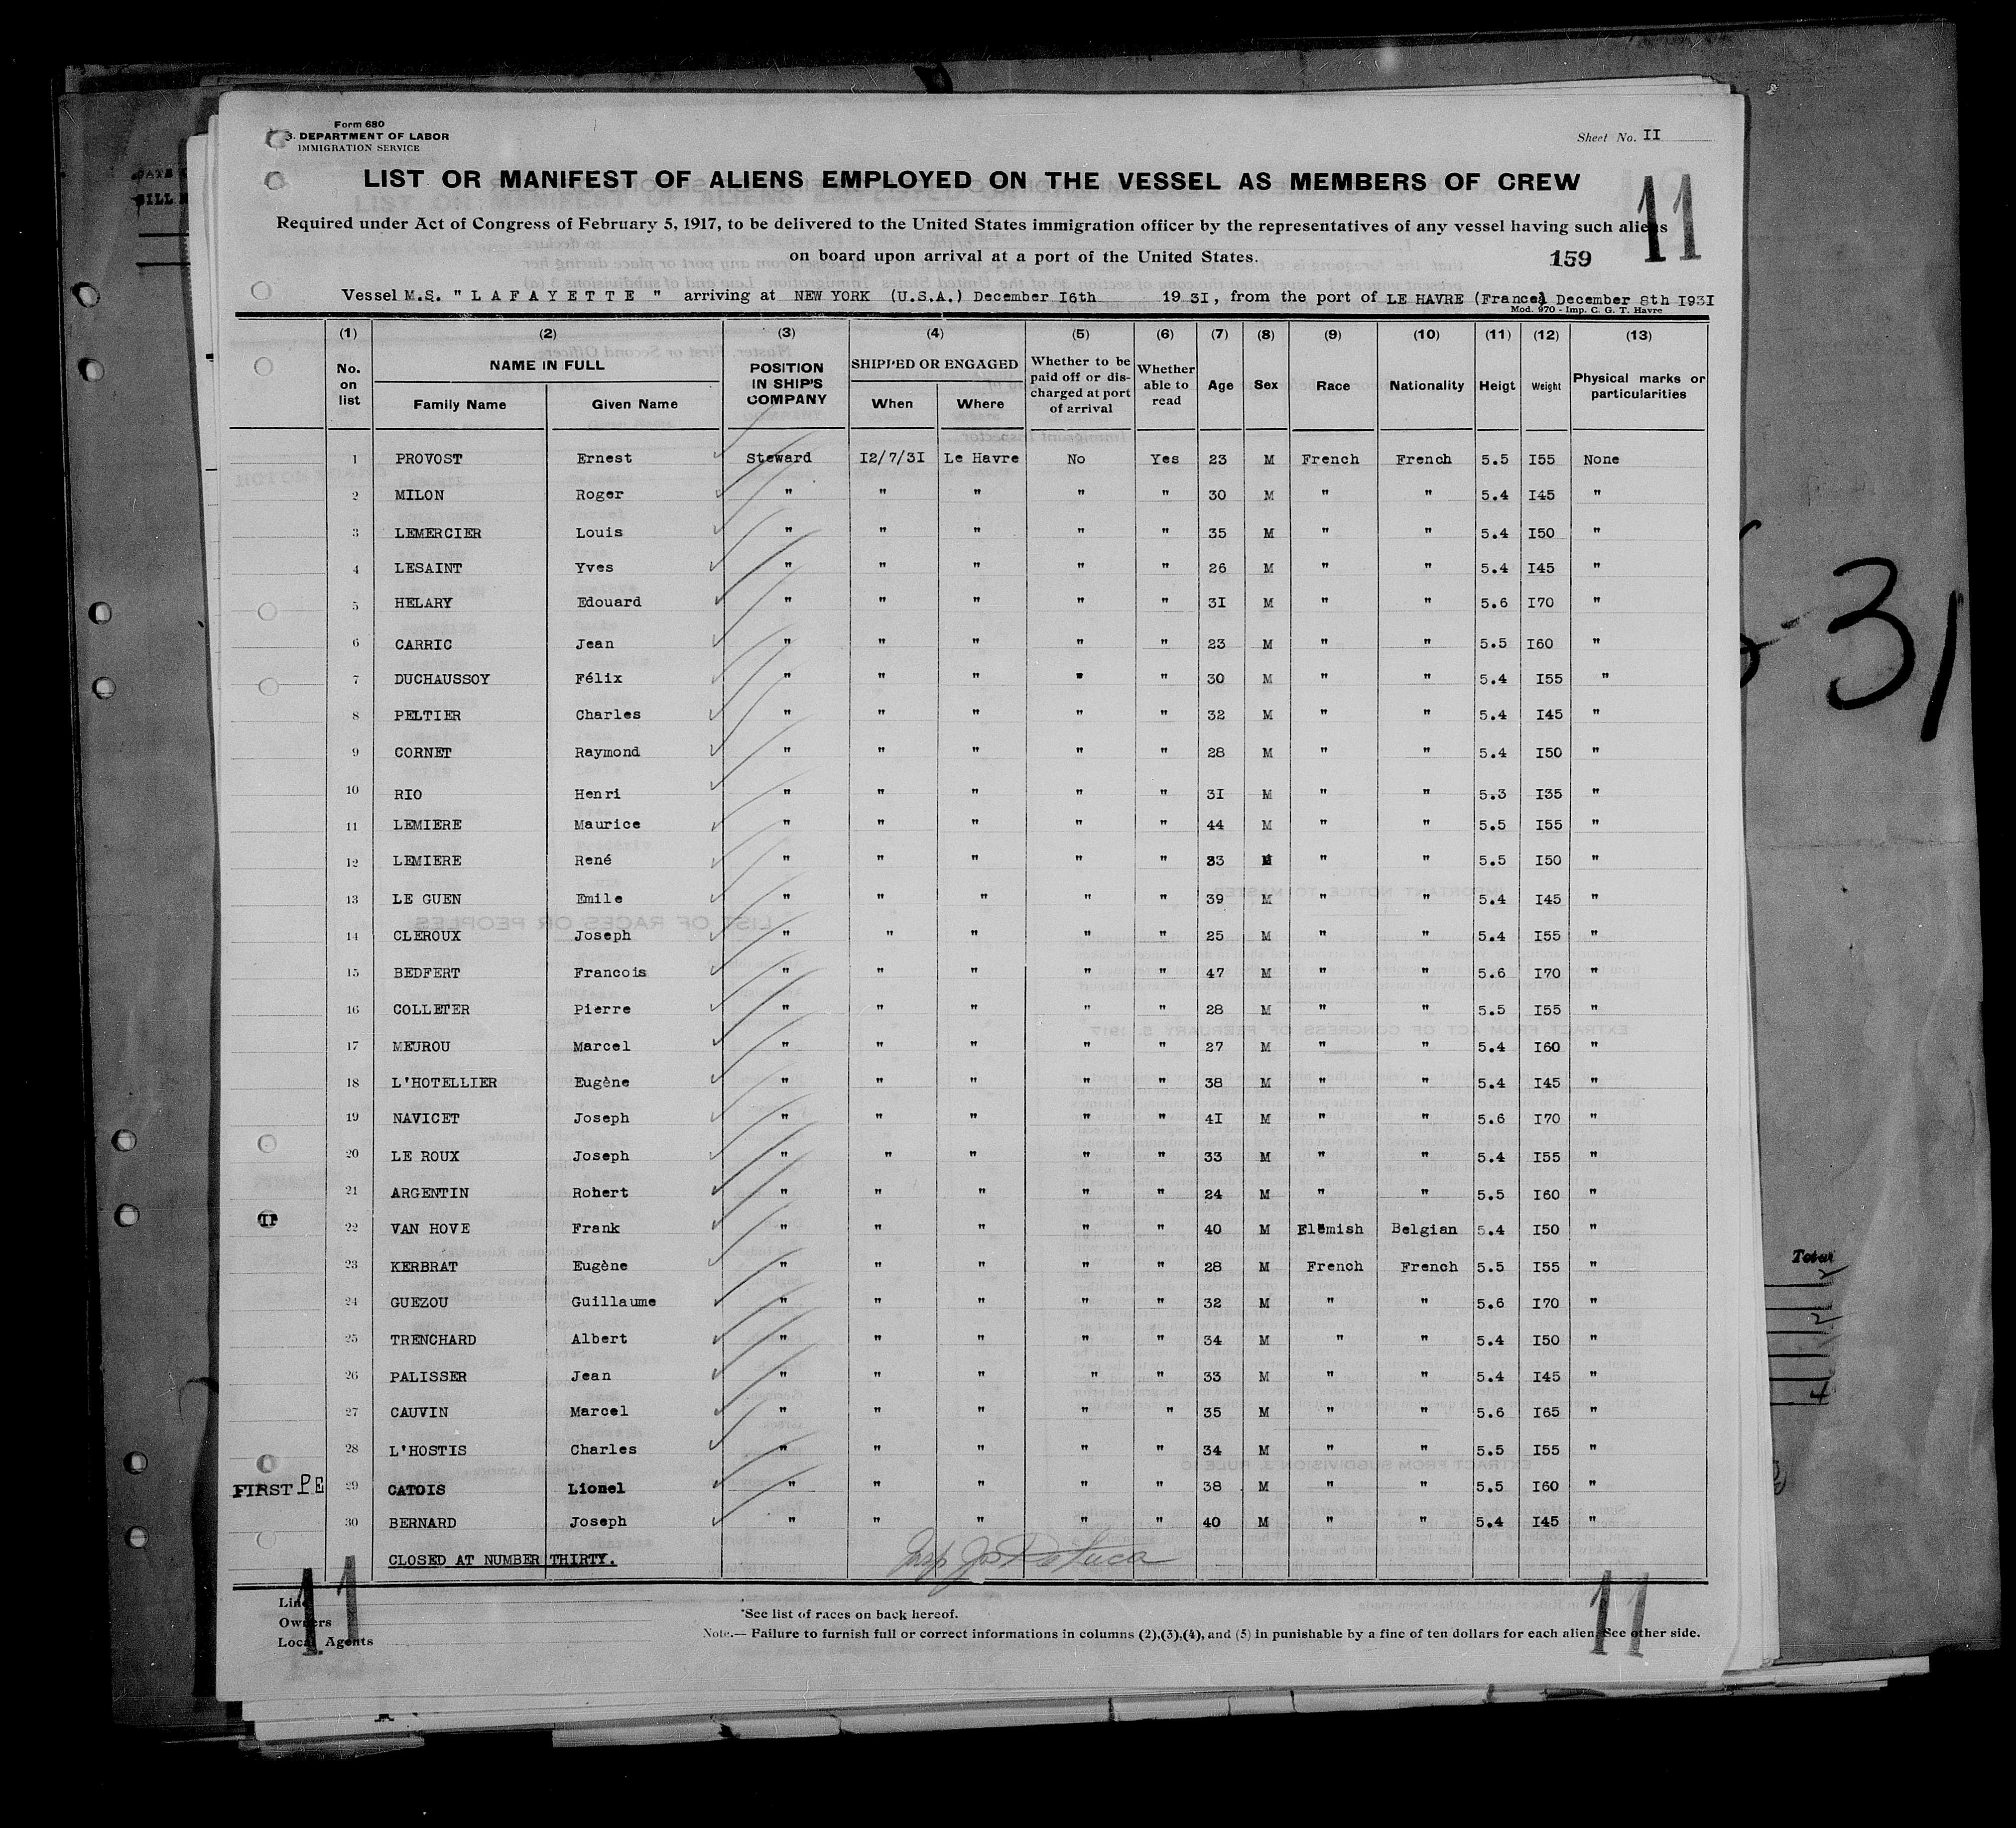 Form 680
S. DEPARTMENT OF LABOR
IMMIGRATION SERVICE
Sheet No. II
LIST OR MANIFEST OF ALIENS EMPLOYED ON THE VESSEL AS MEMBERS OF CREW
11
Required under Act of Congress of February 5, 1917, to be delivered to the United States immigration officer by the representatives of any vessel having such aliens
on board upon arrival at a port of the United States.
159
Vessel M.S. "LAFAYETTE" arriving at NEW YORK (U.S.A.) December I6th 19 3I, from the port of LE HAVRE (France) December 8th I93I
Mod. 970 - Imp. C. G. T. Havre
(1) (2) (3) (4) (5) (6) (7) (8) (9) (10) (11) (12) (13)
No. on list NAME IN FULL Family Name Given Name POSITION IN SHIP'S COMPANY SHIPPED OR ENGAGED When Where Whether to be paid off or discharged at port of arrival Whether able to read Age Sex Race Nationality Heigt Weight Physical marks or particularities
1 PROVOST Ernest Steward I2/7/3I Le Havre No Yes 23 M French French 5.5 I55 None
2 MILON Roger " " " " " 30 M " " 5.4 I45 "
3 LEMERCIER Louis " " " " " 35 M " " 5.4 I50 "
4 LESAINT Yves " " " " " 26 M " " 5.4 I45 "
5 HELARY Edouard " " " " " 3I M " " 5.6 I70 "
6 CARRIC Jean " " " " " 23 M " " 5.5 I60 "
7 DUCHAUSSOY Félix " " " " " 30 M " " 5.4 I55 "
8 PELTIER Charles " " " " " 32 M " " 5.4 I45 "
9 CORNET Raymond " " " " " 28 M " " 5.4 I50 "
10 RIO Henri " " " " " 3I M " " 5.3 I35 "
11 LEMIERE Maurice " " " " " 44 M " " 5.5 I55 "
12 LEMIERE René " " " " " 33 M " " 5.5 I50 "
13 LE GUEN Emile " " " " " 39 M " " 5.4 I45 "
14 CLEROUX Joseph " " " " " 25 M " " 5.4 I55 "
15 BEDFERT Francois " " " " " 47 M " " 5.6 I70 "
16 COLLETER Pierre " " " " " 28 M " " 5.5 I55 "
17 MEUROU Marcel " " " " " 27 M " " 5.4 I60 "
18 L'HOTELLIER Eugène " " " " " 38 M " " 5.4 I45 "
19 NAVICET Joseph " " " " " 4I M " " 5.6 I70 "
20 LE ROUX Joseph " " " " " 33 M " " 5.4 I55 "
21 ARGENTIN Robert " " " " " 24 M " " 5.5 I60 "
22 VAN HOVE Frank " " " " " 40 M Flemish Belgian 5.4 I50 "
23 KERBRAT Eugène " " " " " 28 M French French 5.5 I55 "
24 GUEZOU Guillaume " " " " " 32 M " " 5.6 I70 "
25 TRENCHARD Albert " " " " " 34 M " " 5.4 I50 "
26 PALISSER Jean " " " " " 33 M " " 5.4 I45 "
27 CAUVIN Marcel " " " " " 35 M " " 5.6 I65 "
28 L'HOSTIS Charles " " " " " 34 M " " 5.5 I55 "
FIRST P E 29 CATOIS Lionel " " " " " 38 M " " 5.5 I60 "
30 BERNARD Joseph " " " " " 40 M " " 5.4 I45 "
CLOSED AT NUMBER THIRTY.
Line
Owners
Local Agents
11
11
*See list of races on back hereof.
Note.— Failure to furnish full or correct informations in columns (2),(3),(4), and (5) in punishable by a fine of ten dollars for each alien. See other side.
31
Total